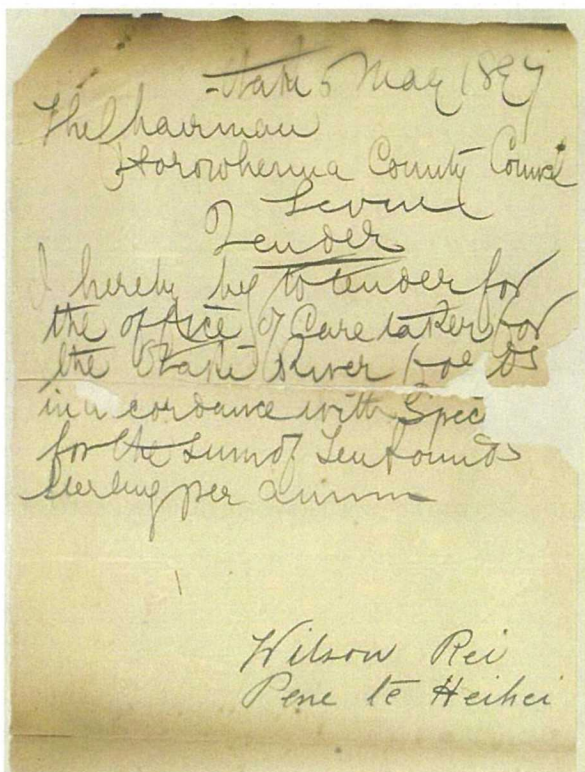 Otaki 5 May 1897
The Chairman
Horowhenua County Council
Levin
Tender
I hereby beg to tender for
the office of Care taker for
the Otaki River
in acordance with Spec
for the Sum of Ten pounds
sterling per Annum
Wilson Rei
Pene te Heihei